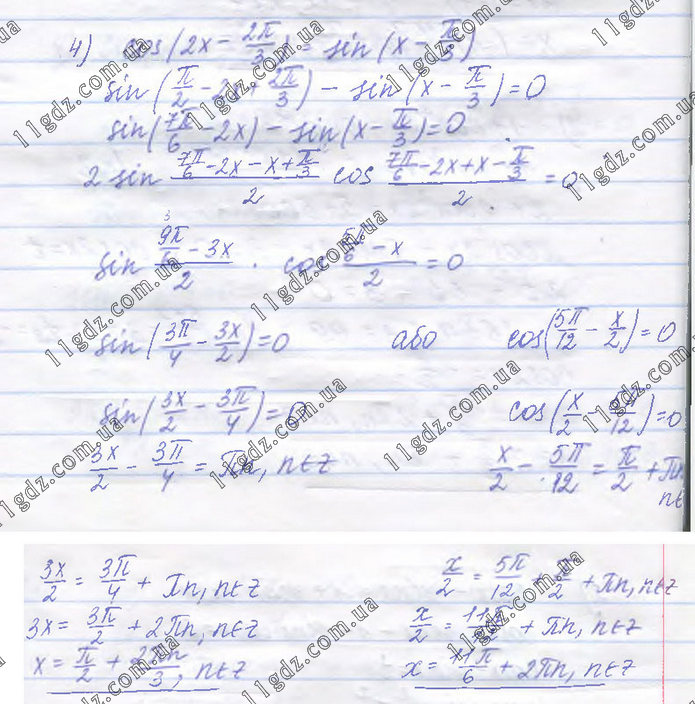 4) cos(2x - 2π/3) = sin(x - π/3)
sin(π/2 - 2x + 2π/3) - sin(x - π/3) = 0
sin(7π/6 - 2x) - sin(x - π/3) = 0
2 sin (7π/6 - 2x - x + π/3)/2 cos (7π/6 - 2x + x - π/3)/2 = 0
sin (9π/6 - 3x)/2 · cos (5π/6 - x)/2 = 0
sin(3π/4 - 3x/2) = 0 або cos(5π/12 - x/2) = 0
sin(3x/2 - 3π/4) = 0 cos(x/2 - 5π/12) = 0
3x/2 - 3π/4 = πn, n∈z x/2 - 5π/12 = π/2 + πn,
n∈
3x/2 = 3π/4 + πn, n∈z x/2 = 5π/12 + π/2 + πn, n∈z
3x = 3π/2 + 2πn, n∈z x/2 = 11π/12 + πn, n∈z
x = π/2 + 2πn/3, n∈z x = 11π/6 + 2πn, n∈z
11gdz.com.ua